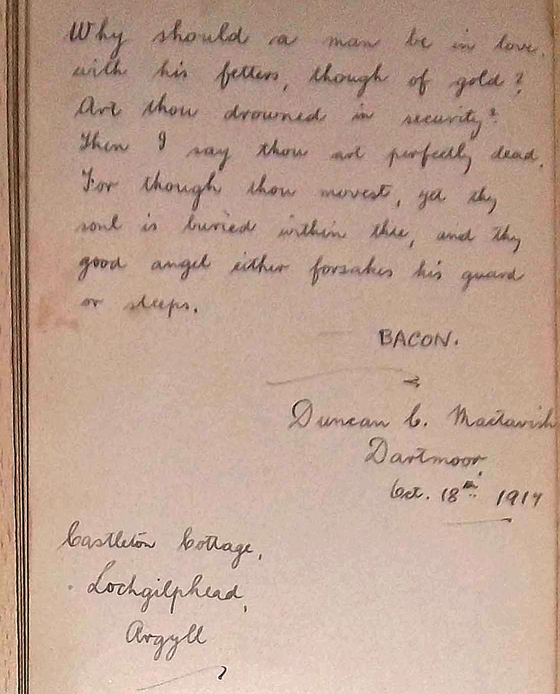 Why should a man be in love
with his fetters, though of gold?
Art thou drowned in security?
Then I say thou art perfectly dead.
For though thou movest, yet thy
soul is buried within thee, and thy
good angel either forsakes his guard
or sleeps.
BACON.
Duncan C. Mactavish
Dartmoor,
Oct. 18th 1917
Castleton Cottage,
Lochgilphead,
Argyll